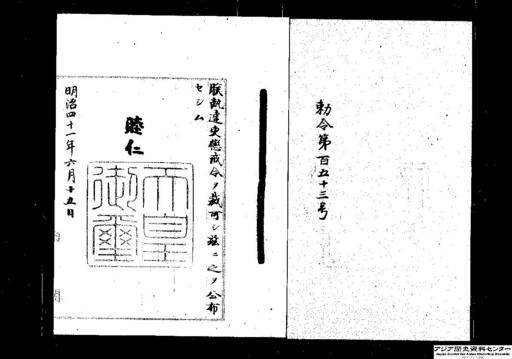 勅令第百五十三号
朕執達吏懲戒令ヲ裁可シ茲ニ之ヲ公布
セシム
睦仁
天皇御璽
明治四十一年六月十五日
アジア歴史資料センター
Japan Center for Asian Historical Records